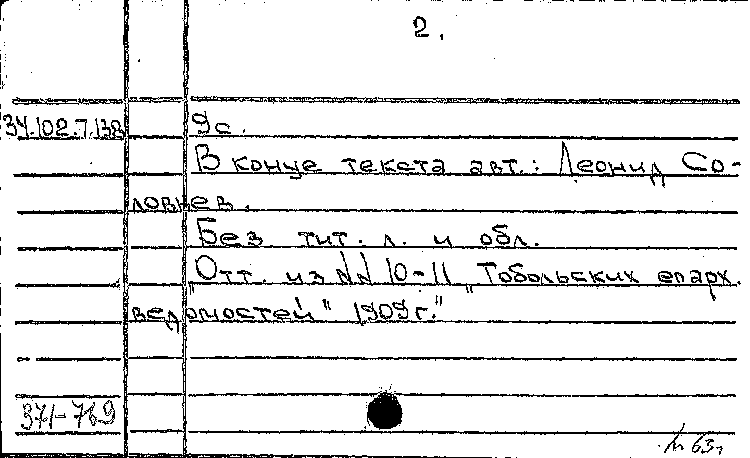 2.
34.102.7.138 9с.
В конце текста авт.: Леонид Со-
ловьев.
Без тит. л. и обл.
"Отт. из NN 10-11 „Тобольских епарх.
ведомостей" 1909г."
371-769
63г